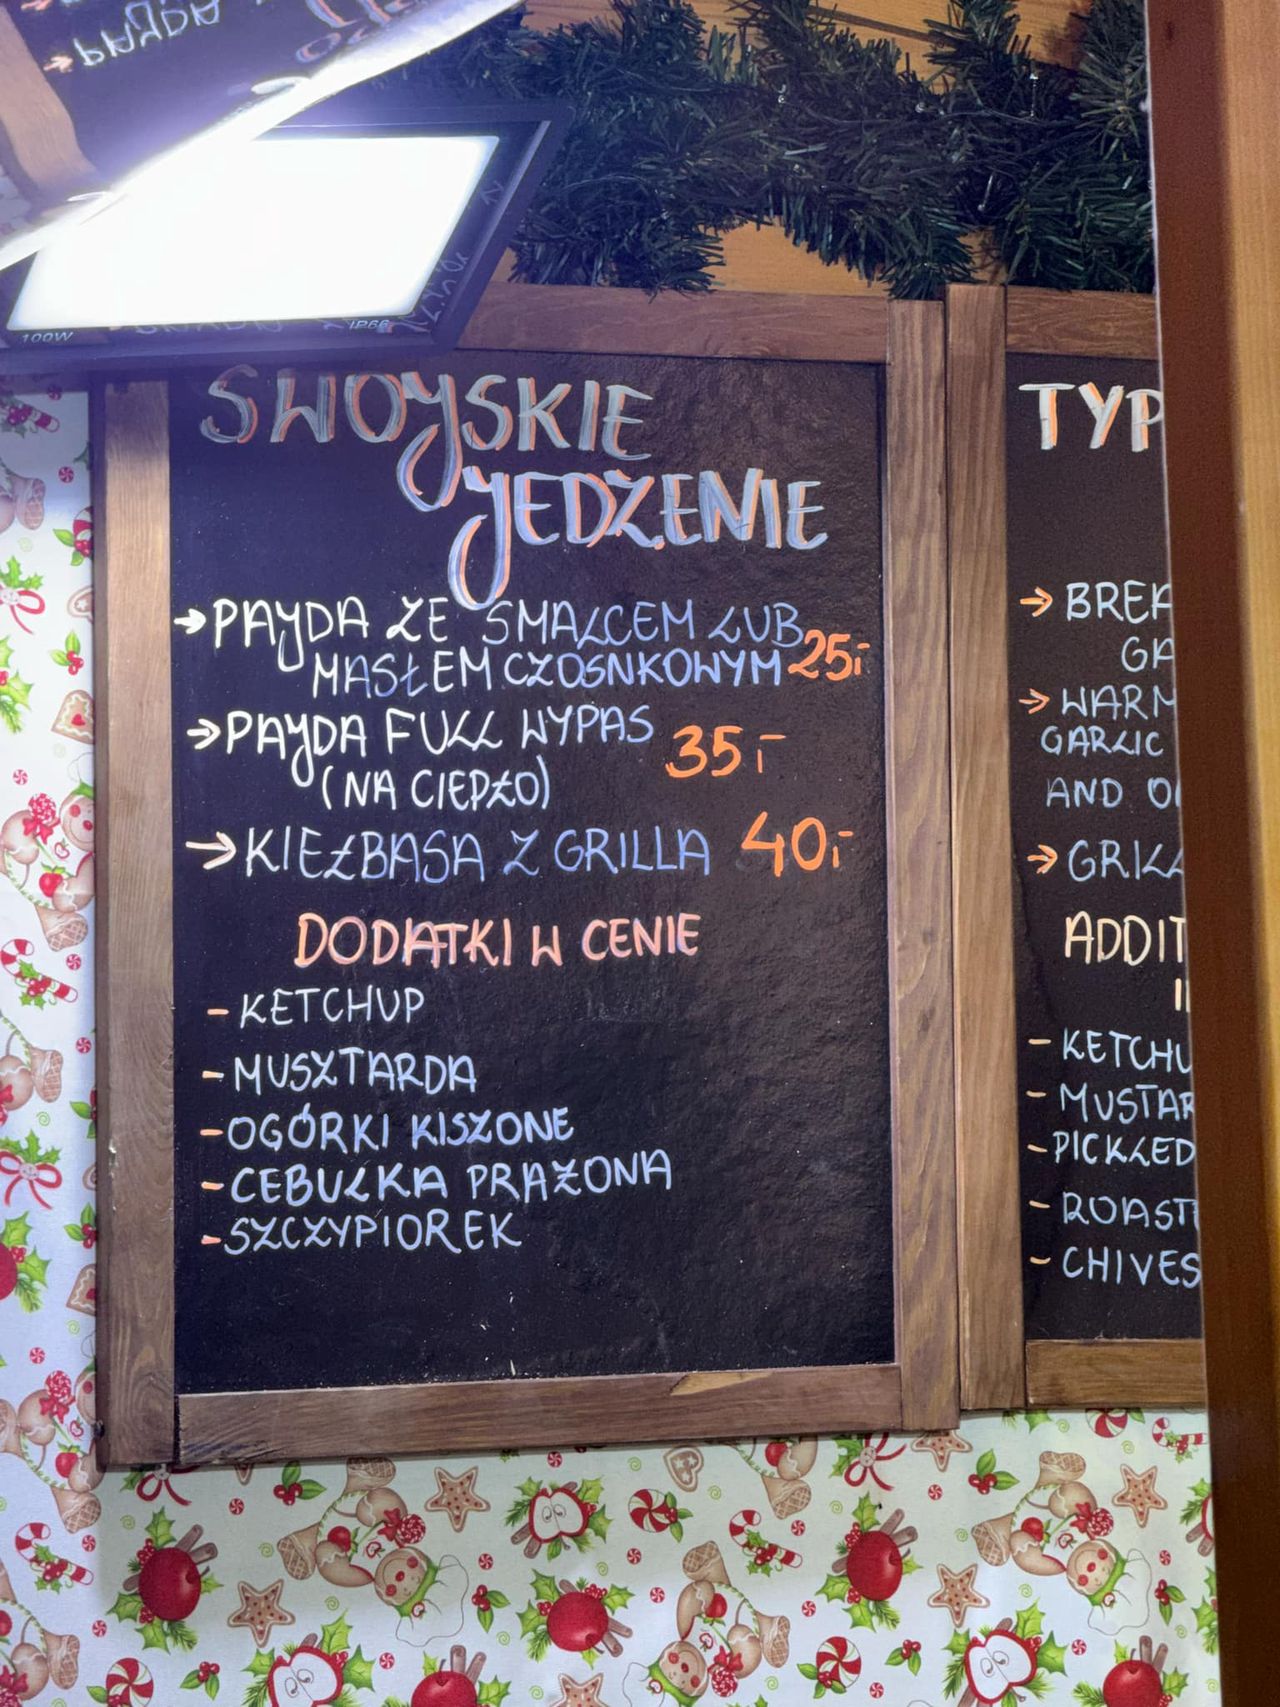 PAJDA
100W
IP66
SWOJSKIE
JEDZENIE
→ PAJDA ZE SMALCEM LUB
MASŁEM CZOSNKOWYM 25,-
→ PAJDA FULL WYPAS 35,-
(NA CIEPŁO)
→ KIEŁBASA Z GRILLA 40,-
DODATKI W CENIE
- KETCHUP
- MUSZTARDA
- OGÓRKI KISZONE
- CEBULKA PRAŻONA
- SZCZYPIOREK
TYP
→ BREA
GA
→ WARM
GARLIC
AND
→ GRILL
ADDIT
- KETCHU
- MUSTAR
- PICKLED
- ROAST
- CHIVES